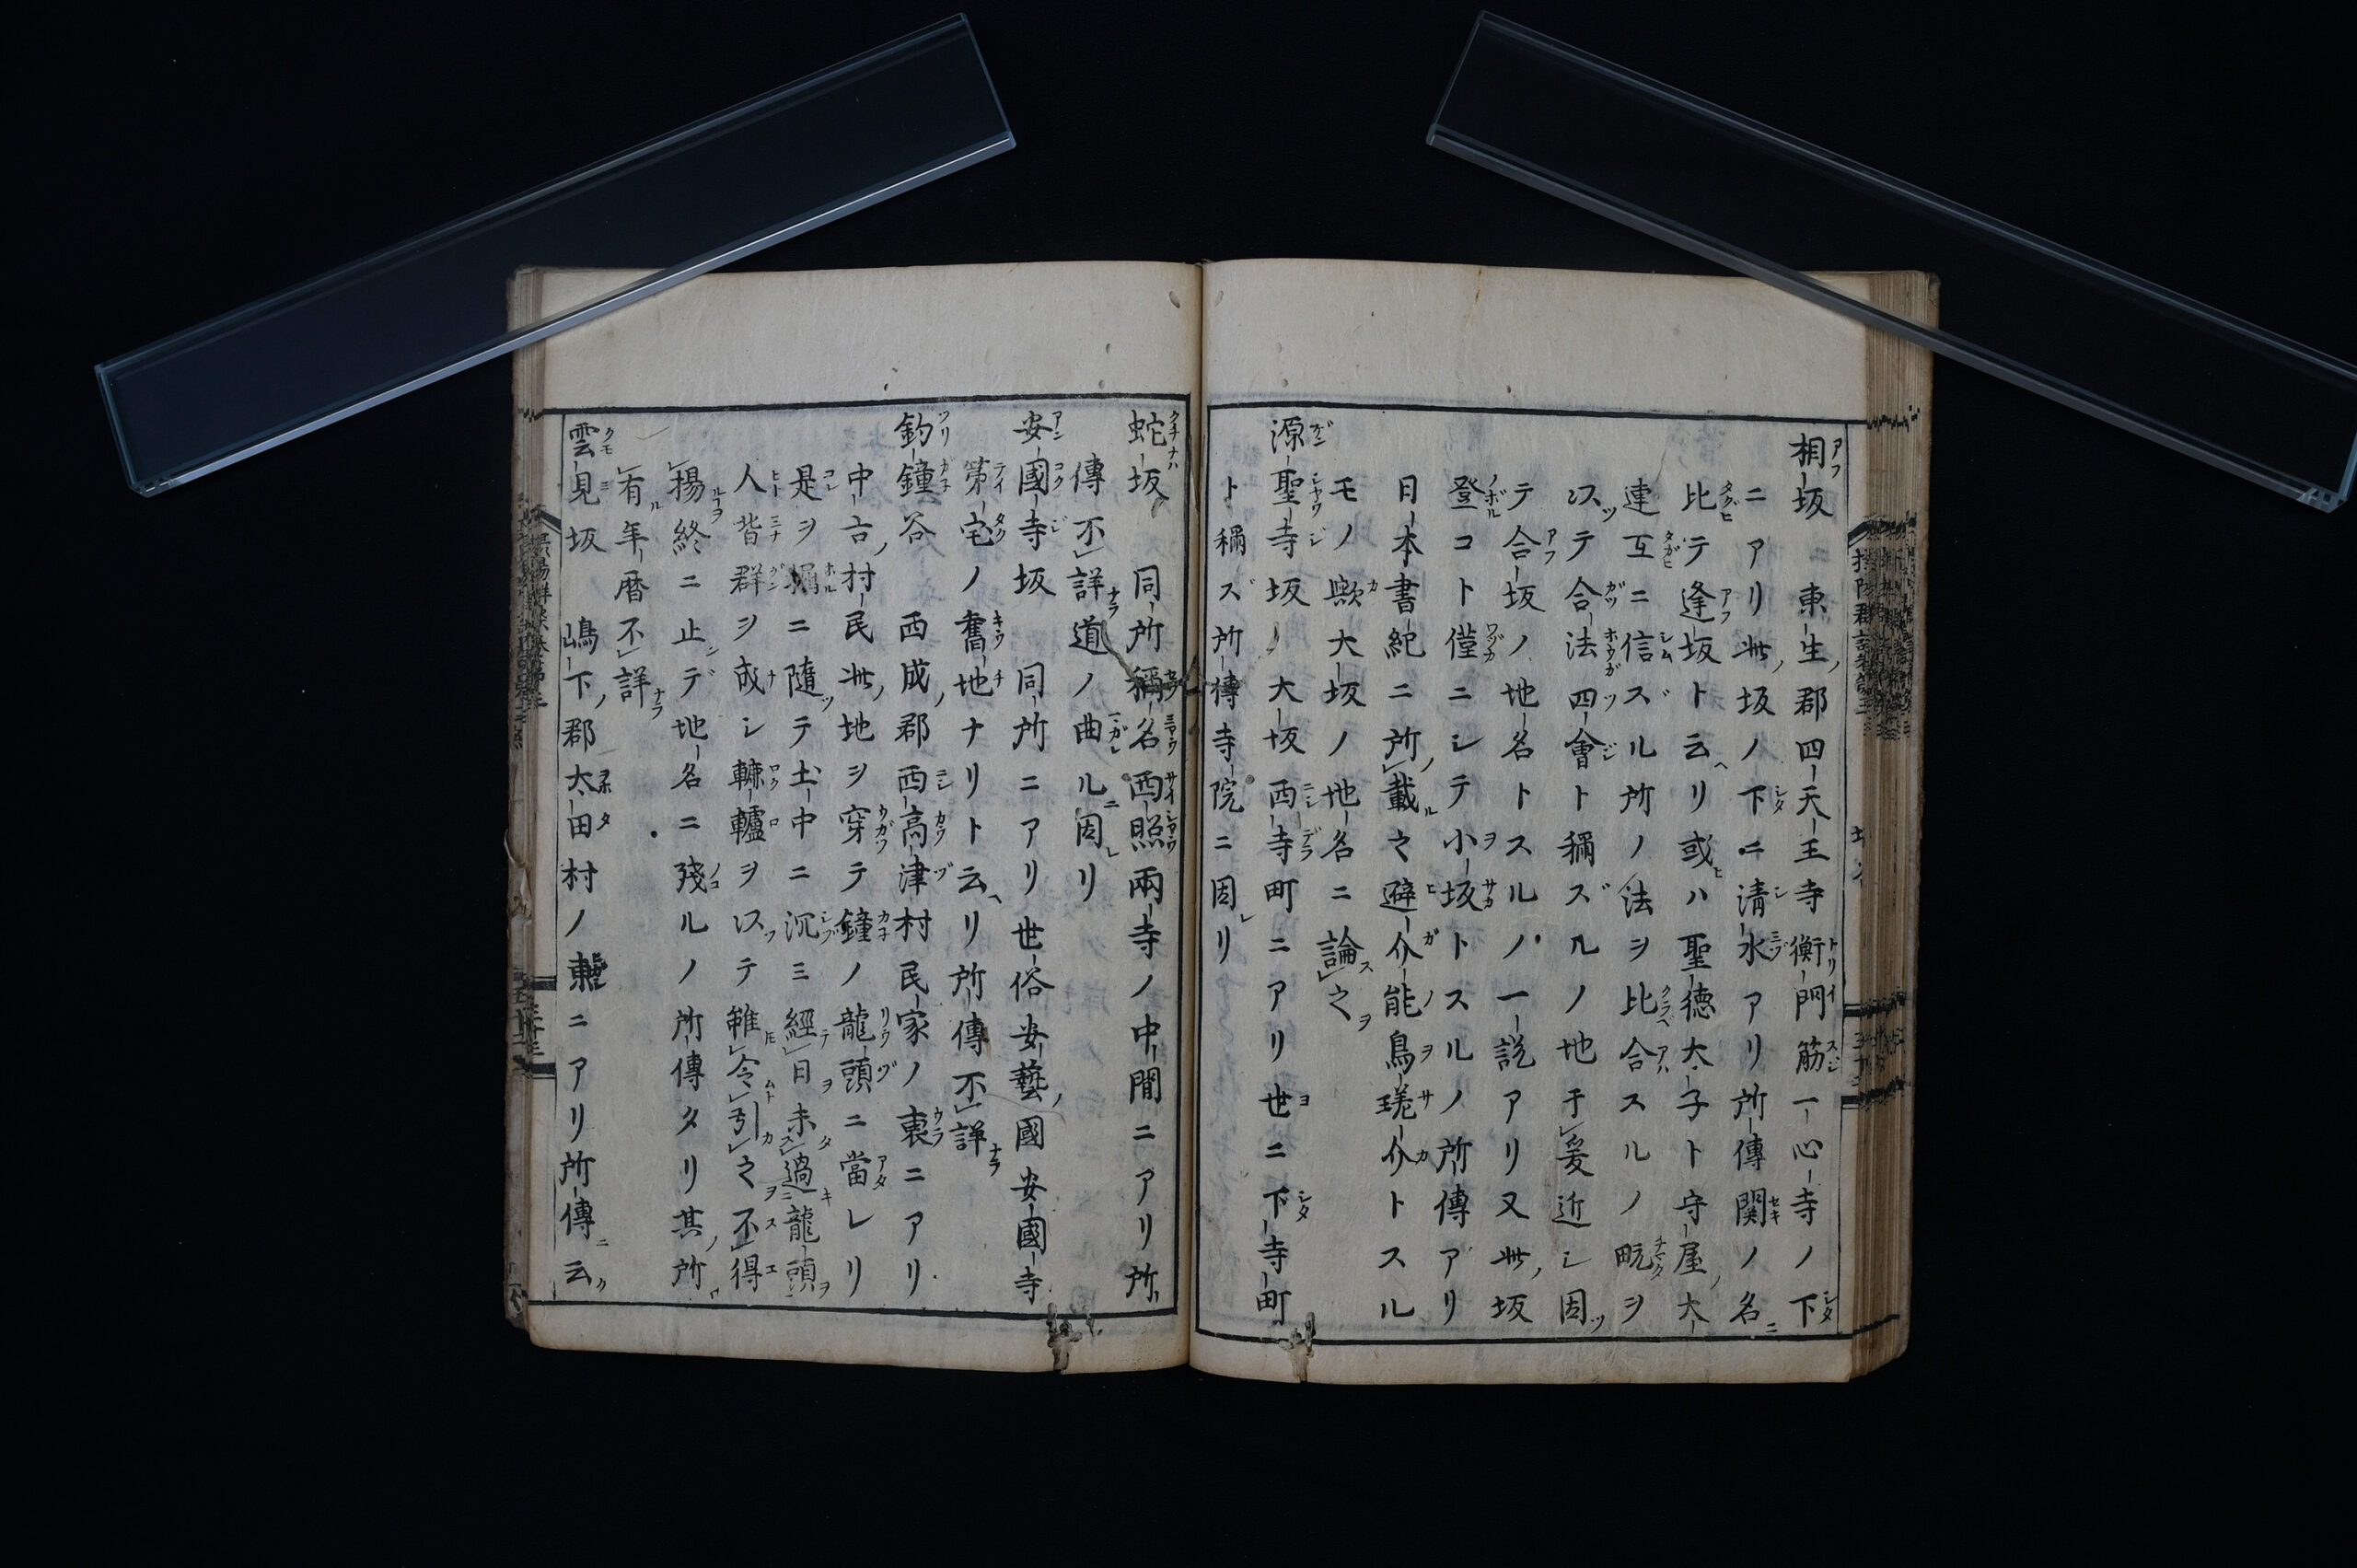 相坂 東生郡四天王寺衡門筋一心寺ノ下
ニアリ此坂ノ下ニ清水アリ所傳関ノ名ニ
比テ逢坂ト云リ或ハ聖徳太子ト守屋大
連互ニ信ズル所ノ法ヲ比合スルノ畈ヲ
以テ合法四會ト稱ズルノ地于爰近シ因
テ合坂ノ地名トスルノ一説アリ又此坂
登コト僅ニシテ小坂トスルノ所傳アリ
日本書紀ニ所載之避介能烏瑳介トスル
モノ歟大坂ノ地名ニ論之
源聖寺坂 大坂西寺町ニアリ世ニ下寺町
ト稱ズ所傳寺院ニ因リ
蛇坂 同所稱名西照兩寺ノ中間ニアリ所
傳不詳道ノ曲ルニ因レリ
安國寺坂 同所ニアリ世俗安藝國安國寺
第宅ノ舊地ナリト云リ所傳不詳
釣鐘谷 西成郡西高津村民家ノ裏ニアリ
中古村民此地ヲ穿テ鐘ノ龍頭ニ當レリ
是ヲ堀ニ隨テ土中ニ沉ミ經日未過龍頭
人皆群ヲ成シ轆轤ヲ以テ雖令引之不得
揚終ニ止デ地名ニ殘ルノ所傳タリ其所
有年暦不詳
雲見坂 嶋下郡太田村ノ東ニアリ所傳云